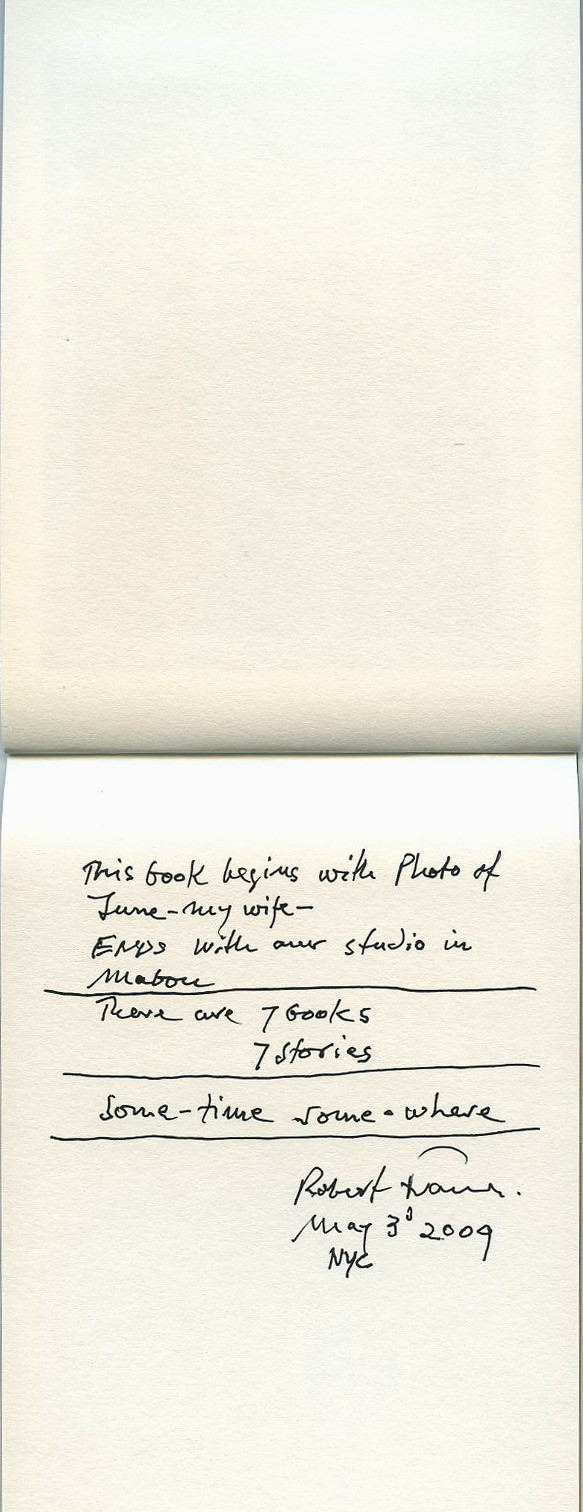 This book begins with Photo of
June - my wife -
ENDS with our studio in
Mabou
There are 7 Books
7 Stories
Some-time some-where
Robert Frank.
May 3d 2009
NYC